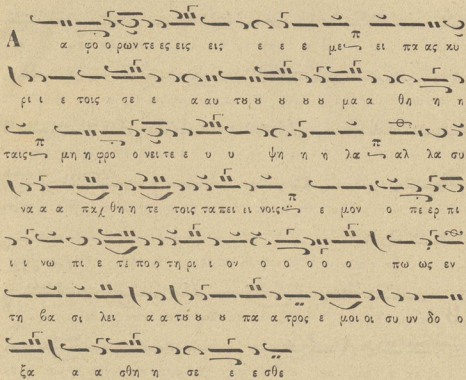 Α α φο ο ρων τε ες εις εις ε ε ε με ει πα ας κυ
ρι ι ε τοις σε ε α αυ τȣ ȣ ȣ ȣ ȣ μα α θη η η
ταις μη η φρο ο νει τε ε υ υ ψη η η λα αλ λα συ
να α α πα χθη η τε τοις τα πει ει νοις ε μον ο πε ερ πι
ι ι νω πι ε τε πο ο τη ρι ι ον ο ο ο ο ο πω ως εν
τη βα σι λει α α τȣ ȣ ȣ πα α τρος ε μοι οι συ υν δο ο
ξα α α σθη η σε ε ε σθε